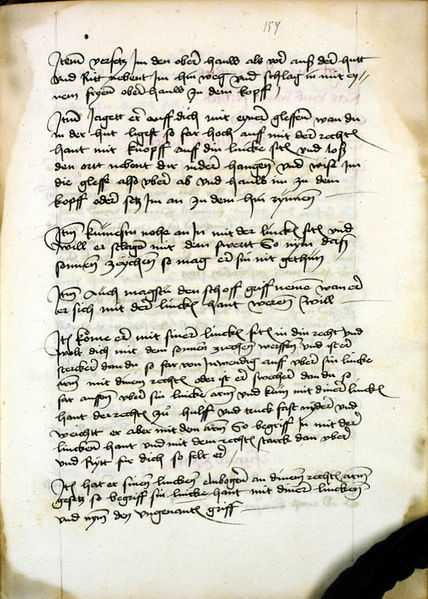 154
Item versetz Im den ober hauw als vor auß der hutt
und Ritt nebent Im hin weg und schlag in mit ey//
nem fryen ober hauw zu dem kopff
Item Jagett er auff dich mit eyner gleffen wan du
in der hut ligest so far hoch auf mit der rechten
hant mit knopff auf din lincke sitn und loß
den ortt nebent dir nider hangen und wiß im
die gleffe also uber ab und hauw im zu dem
kopff oder setz Im an zu dem hin rynnen
Itm kumestu nohe an In mit der lincken sitn und
will er schlagen mit dem swertt So nym daß
sonnen zeychen so mag er sin nit gethun
Itm Auch magstu den schoff griff neme wan er
er sich mit der lincken hant weren will
Itn kome er mit siner lincken sitn in din recht und
wolt dich mit dem sonnen zeichen werffen und ist er
stercker dan du so far von inwendig auf uber sin lincke
arm mit dinen rechten oder ist er swecher dan du so
far aussen uber sin lincke arm und kum mit diner lincken
hant der rechten zu hulff und truck fast nyder und
weicht er aber mit dem arm So begriff In mit der
lincken hant und mit dem rechten starck dan uber
und Rytt fur dich so felt er
Itn hat er sinen lincken elnbogen an dinem rechten arm
gesetzt so begriff sin lincke hant mit diner lincken
und nym den ungenanten griff